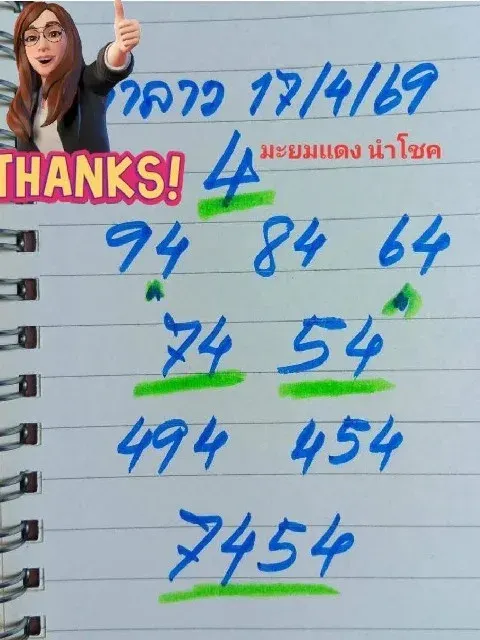 าลาว 17/4/69
มะยมแดง นำโชค
THANKS!
4
94 84 64
74 54
494 454
7454